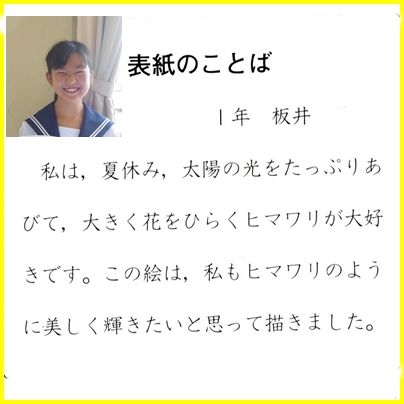 表紙のことば
１年　板井
私は，夏休み，太陽の光をたっぷりあ
びて，大きく花をひらくヒマワリが大好
きです。この絵は，私もヒマワリのよう
に美しく輝きたいと思って描きました。